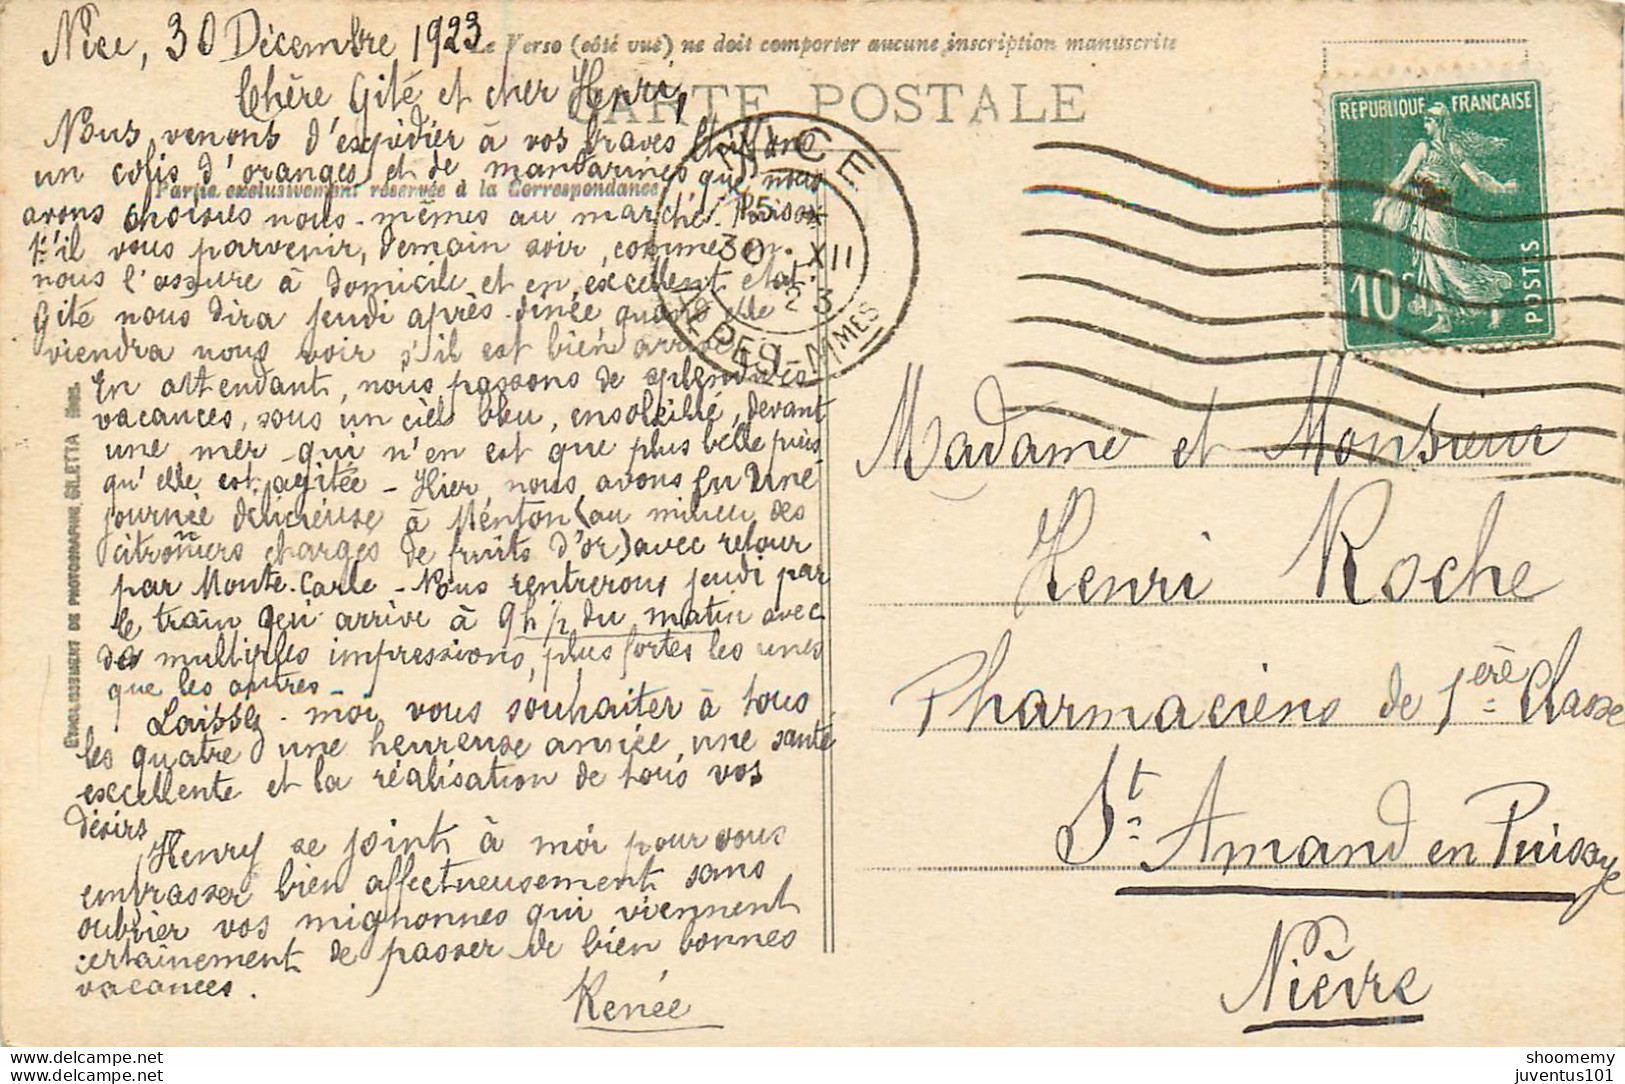 Nice, 30 Décembre 1923
Le Verso (côté vue) ne doit comporter aucune inscription manuscrite
CARTE POSTALE
Partie exclusivement réservée à la Correspondance
Chère Gité et cher Henri,
Nous venons d'expédier à vos braves
un colis d'oranges et de mandarines que nous
avons choisies nous-mêmes au marché. Puisse
t'il vous parvenir, demain soir, comme on
nous l'assure à domicile et en excellent état.
Gité nous dira jeudi après-dînée quand elle
viendra nous voir s'il est bien arrivé
En attendant, nous passons de splendides
vacances, sous un ciel bleu, ensoleillé, devant
une mer qui n'en est que plus belle puis
qu'elle est agitée - Hier, nous avons eu une
journée délicieuse à Menton (au milieu des
citronniers chargés de fruits d'or) avec retour
par Monte-Carle - Nous rentrerons jeudi par
le train qui arrive à 9h 1/2 du matin avec
des multiples impressions, plus fortes les unes
que les autres -
Laissez-moi vous souhaiter à tous
les quatre une heureuse année, une santé
excellente et la réalisation de tous vos
désirs
Henry se joint à moi pour vous
embrasser bien affectueusement sans
oublier vos mignonnes qui viennent
certainement de passer de bien bonnes
vacances.
Renée
ETABLISSEMENT DE PHOTOGRAPHIE GILETTA Nice.
NICE
15 *
30 - XII
23
ALPES-MMES
REPUBLIQUE FRANÇAISE
10c
POSTES
Madame et Monsieur
Henri Roche
Pharmaciens de 1ère Classe
St Amand en Puisaye
Nièvre
delcampe.net
delcampe.net
shoomemy
juventus101